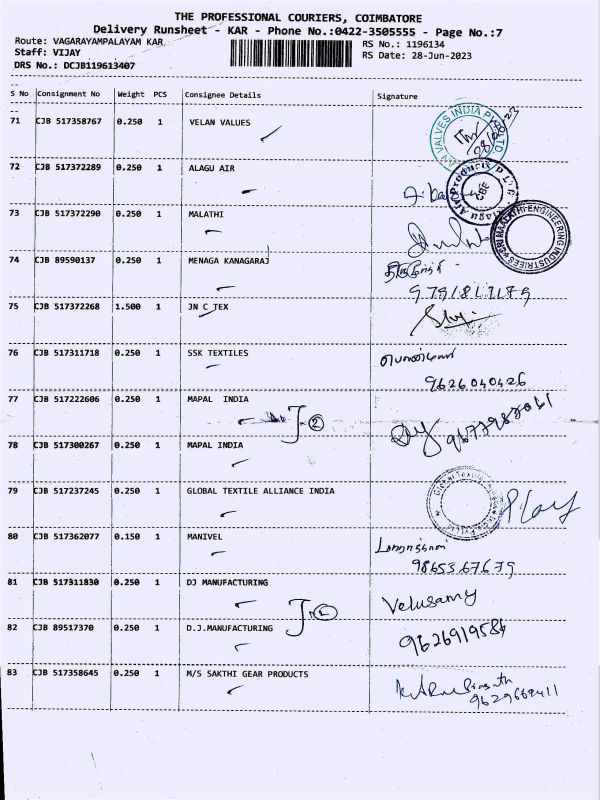 THE PROFESSIONAL COURIERS, COIMBATORE
Delivery Runsheet - KAR - Phone No.:0422-3505555 - Page No.:7
Route: VAGARAYAMPALAYAM KAR
RS No.: 1196134
Staff: VIJAY
RS Date: 28-Jun-2023
DRS No.: DCJB119613407
S No Consignment No Weight PCS Consignee Details Signature
71 CJB 517358767 0.250 1 VELAN VALUES
VALVES INDIA
72 CJB 517372289 0.250 1 ALAGU AIR
73 CJB 517372290 0.250 1 MALATHI
74 CJB 89590137 0.250 1 MENAGA KANAGARAJ
75 CJB 517372268 1.500 1 JN C TEX
76 CJB 517311718 0.250 1 SSK TEXTILES
9626040426
77 CJB 517222606 0.250 1 MAPAL INDIA
2
78 CJB 517300267 0.250 1 MAPAL INDIA
79 CJB 517237245 0.250 1 GLOBAL TEXTILE ALLIANCE INDIA
80 CJB 517362077 0.150 1 MANIVEL
9865367679
81 CJB 517311830 0.250 1 DJ MANUFACTURING
Velusamy
82 CJB 89517370 0.250 1 D.J.MANUFACTURING
9626919584
83 CJB 517358645 0.250 1 M/S SAKTHI GEAR PRODUCTS